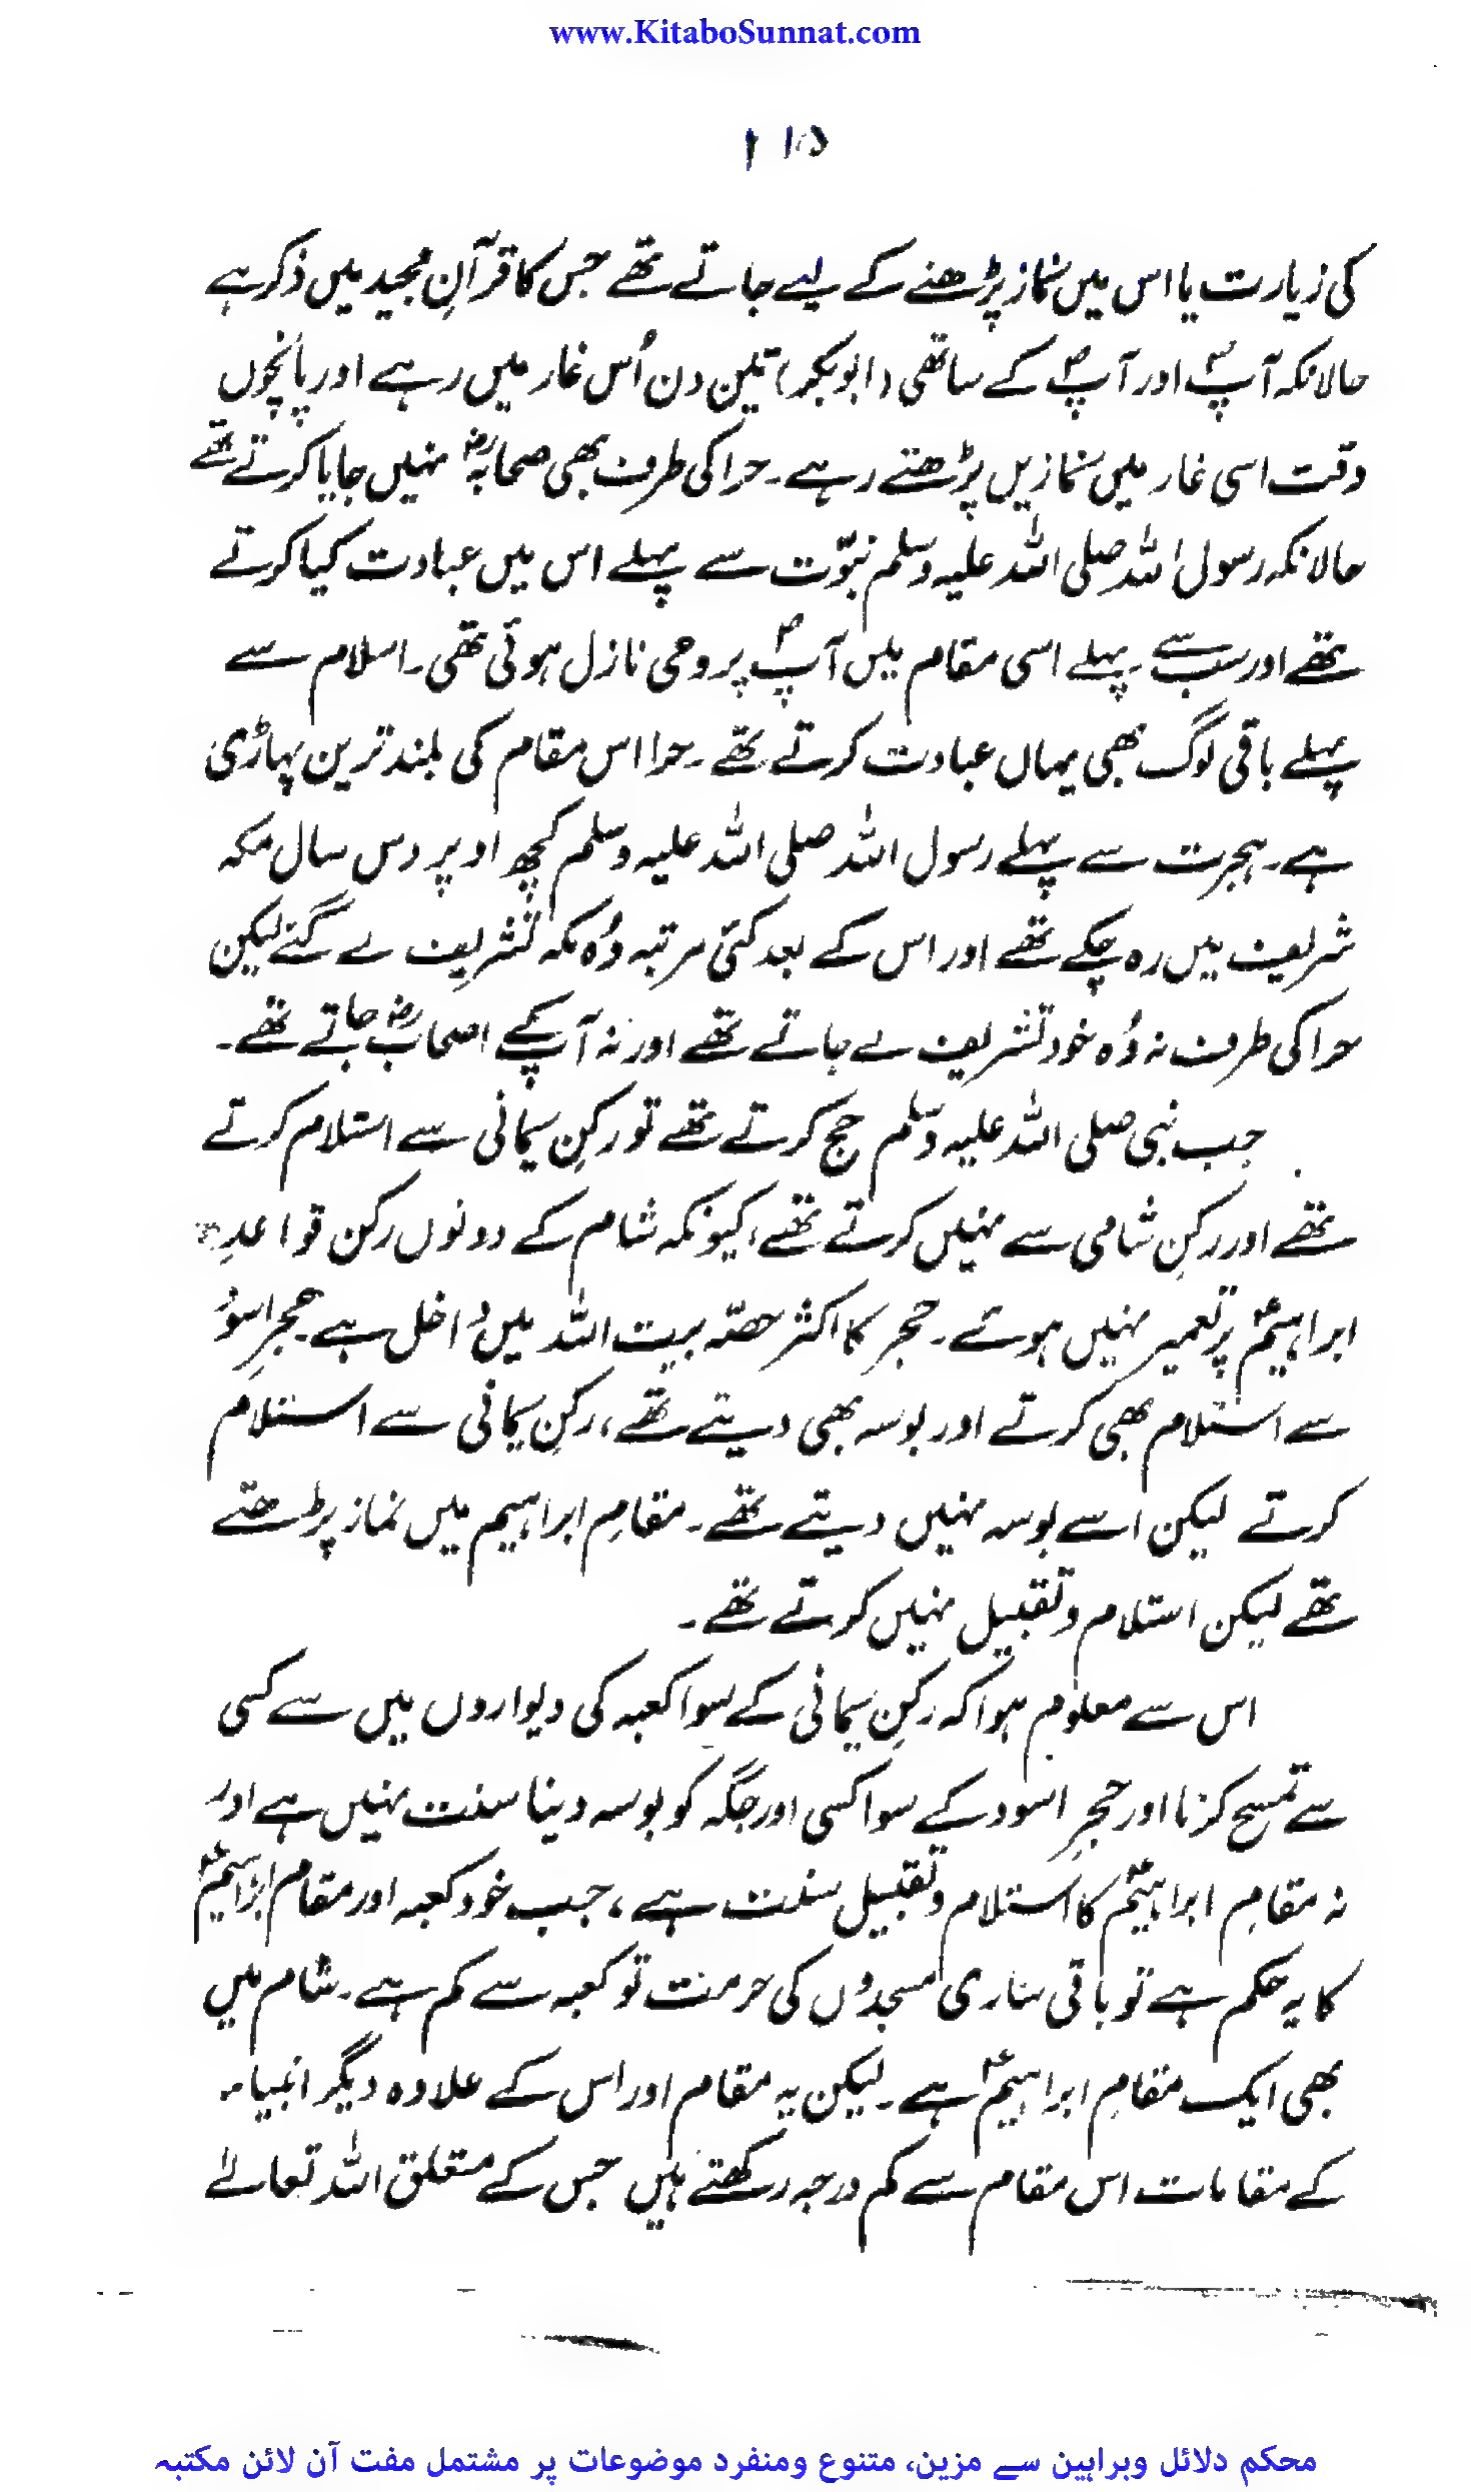 www.KitaboSunnat.com
کی زیارت یا اس میں نماز پڑھنے کے لیے جاتے تھے جس کا قرآنِ مجید میں ذکر ہے
حالانکہ آپؐ اور آپؐ کے ساتھی (ابوبکر) تین دن اُس غار میں رہے اور پانچوں
وقت اسی غار میں نمازیں پڑھتے رہے۔ حرا کی طرف بھی صحابہؓ نہیں جایا کرتے تھے
حالانکہ رسول اللہ صلی اللہ علیہ وسلم نبوّت سے پہلے اس میں عبادت کیا کرتے
تھے اور سب سے پہلے اسی مقام میں آپؐ پر وحی نازل ہوئی تھی۔ اسلام سے
پہلے باقی لوگ بھی یہاں عبادت کرتے تھے۔ حرا اس مقام کی بلند ترین پہاڑی
ہے۔ ہجرت سے پہلے رسول اللہ صلی اللہ علیہ وسلم کچھ اوپر دس سال مکہ
شریف میں رہ چکے تھے اور اس کے بعد کئی مرتبہ وُہ مکہ تشریف لے گئے لیکن
حرا کی طرف نہ وُہ خود تشریف لے جاتے تھے اور نہ آپ کے اصحابؓ جاتے تھے۔
جب نبی صلی اللہ علیہ وسلم حج کرتے تھے تو رکنِ یمانی سے استلام کرتے
تھے اور رکنِ شامی سے نہیں کرتے تھے، کیونکہ شام کے دونوں رکن قواعدِ
ابراہیمؑ پر تعمیر نہیں ہوئے۔ حجر کا اکثر حصّہ بیت اللہ میں داخل ہے۔ حجرِ اسود
سے استلام بھی کرتے اور بوسہ بھی دیتے تھے، رکنِ یمانی سے استلام
کرتے لیکن اسے بوسہ نہیں دیتے تھے۔ مقامِ ابراہیم میں نماز پڑھتے
تھے لیکن استلام و تقبیل نہیں کرتے تھے۔
اس سے معلوم ہوا کہ رکنِ یمانی کے سوا کعبہ کی دیواروں میں سے کسی
سے تمسح کرنا اور حجرِ اسود کے سوا کسی اور جگہ کو بوسہ دینا سنت نہیں ہے اور
نہ مقامِ ابراہیمؑ کا استلام و تقبیل سنت ہے، جب خود کعبہ اور مقام ابراہیمؑ
کا یہ حکم ہے تو باقی ساری مسجدوں کی حرمت تو کعبہ سے کم ہے۔ شام میں
بھی ایک مقامِ ابراہیمؑ ہے۔ لیکن یہ مقام اور اس کے علاوہ دیگر انبیاء
کے مقامات اس مقام سے کم درجہ رکھتے ہیں جس کے متعلق اللہ تعالےٰ
محکم دلائل وبراہین سے مزین، متنوع ومنفرد موضوعات پر مشتمل مفت آن لائن مکتبہ